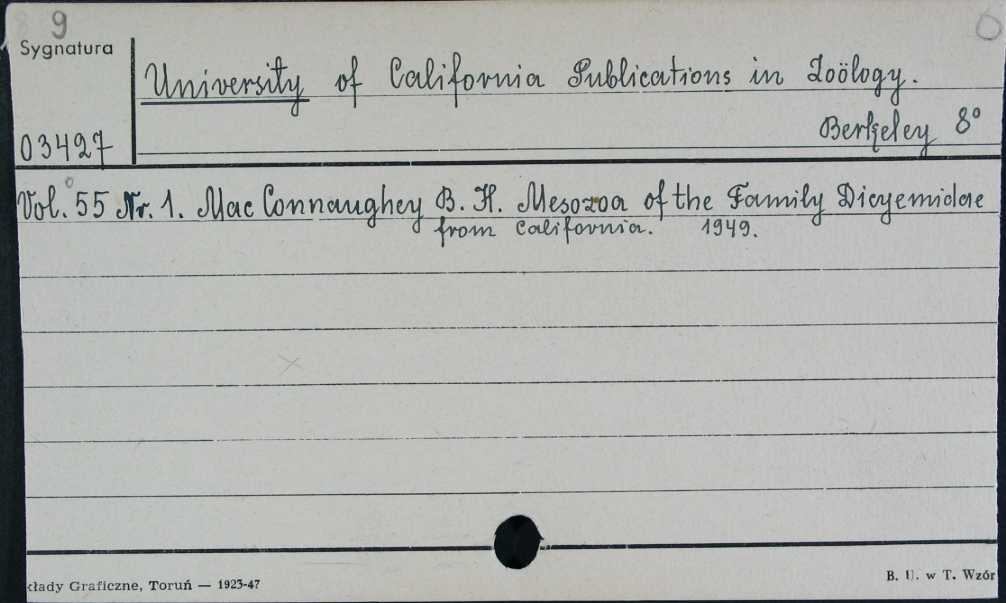 9
Sygnatura
University of California Publications in Zoölogy.
03427
Berkeley 8°
Vol. 55 Nr. 1. Mac Connaughey B. H. Mesozoa of the Family Dicyemidae
from California. 1949.
kłady Graficzne, Toruń — 1923-47
B. U. w T. Wzór